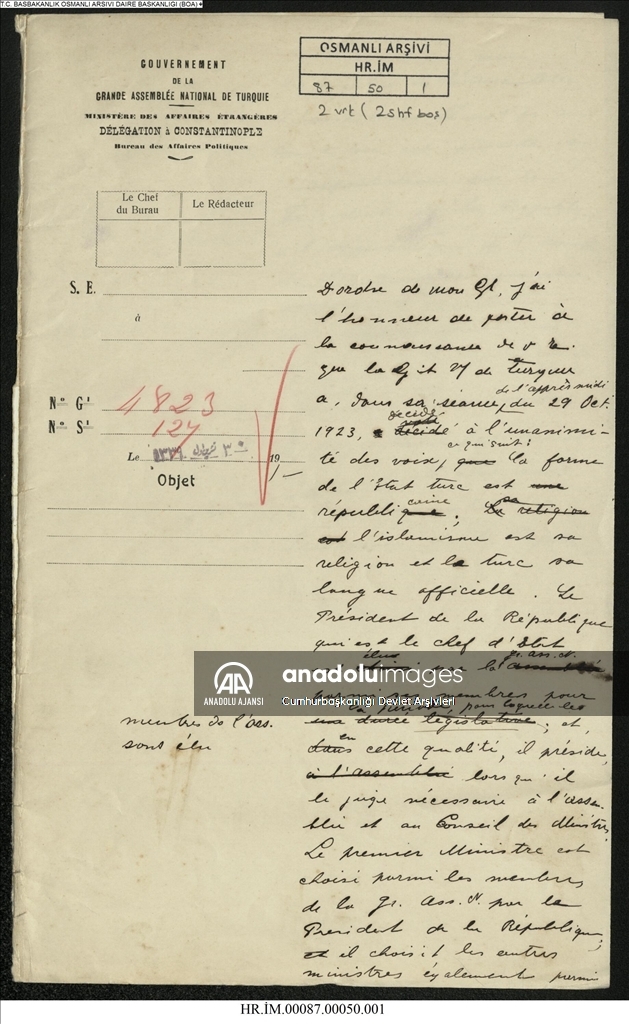 T.C. BASBAKANLIK OSMANLI ARSIVI DAIRE BASKANLIGI (BOA)
GOUVERNEMENT
DE LA
GRANDE ASSEMBLÉE NATIONAL DE TURQUIE
MINISTÈRE DES AFFAIRES ÉTRANGÈRES
DÉLÉGATION à CONSTANTINOPLE
Bureau des Affaires Politiques
OSMANLI ARŞİVİ
HR.İM
87 50 1
2 vrk (2 shf boş)
Le Chef
du Burau
Le Rédacteur
S. E.
à
Nº Gˡ 4823
Nº Sˡ 127
Le 19
Objet
D'ordre de mon Gt, j'ai
l'honneur de porter à
la connaissance de v
que la G de Turquie
de l'après midi
a, dans sa séance, du 29 Oct.
décidé
1923, décidé à l'unanimi-
ce qui suit:
té des voix, que la forme
de l'Etat turc est une
caine sa
république; La religion
est l'islamisme est sa
religion et le turc sa
langue officielle. Le
Président de la République
qui est le chef d'Etat
élu gr. ass. N.
par la
parmi ses membres pour
pour laquelle les
membres de l'ass.
sont élu
une durée législative; et,
en
dans cette qualité, il préside,
à l'assemblée lorsqu'il
le juge nécessaire à l'assem-
blée et au Conseil des Ministres
Le premier Ministre est
choisi parmi les membres
de la Gr. Ass. N. par le
President de la République;
et il choisit les autres
ministres également parmi
AA
ANADOLU AJANSI
anadoluimages
Cumhurbaşkanlığı Devlet Arşivleri
HR.İM.00087.00050.001